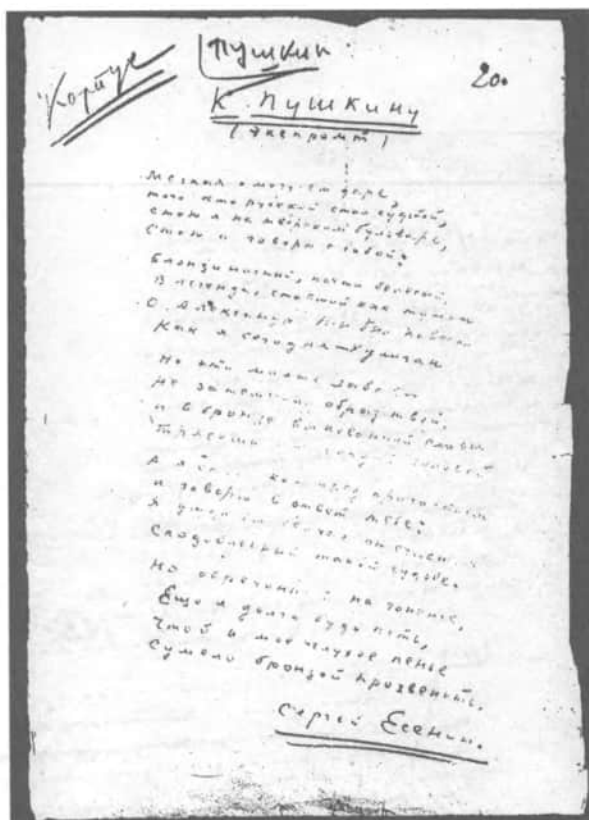 Корпус
Пушкин
20.
К. Пушкину
(Экспромт)
Мечтая о могучем даре,
того кто русской стал судьбой,
стою я на тверском бульваре,
Стою и говорю с собой.
Блондинистый, почти белесый,
В легендах ставший как туман
О Александр! Ты был повеса
Как я сегодня хулиган
Но эти милые забавы
Не затемнили образ твой,
и в бронзе выкованной славы
Трясешь ты головой
А я как пред причастьем
и говорю в ответ тебе:
Я умер бы сейчас от
Сподобленный такой судьбе.
Но обреченный на гоненье,
Еще я долго буду петь,
Чтоб и мое пенье
Сумело бронзой прозвенеть.
Сергей Есенин.